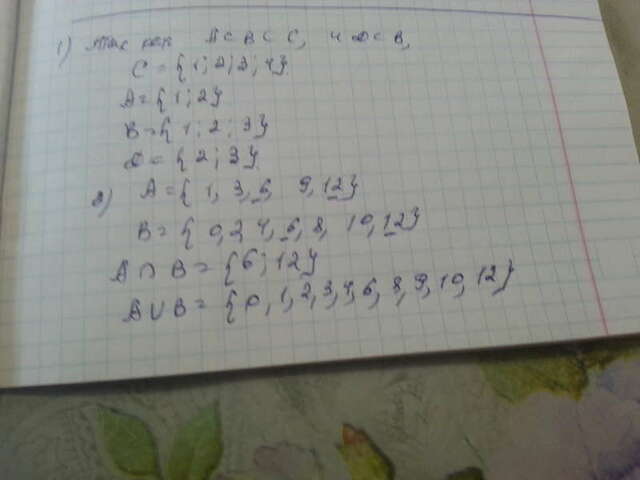 1) Так как A⊂B⊂C, и D⊂B,
C = {1; 2; 3; 4}
A = {1; 2}
B = {1; 2; 3}
D = {2; 3}.
2) A = {1, 3, 6, 9, 12}
B = {0, 2, 4, 6, 8, 10, 12}
A ∩ B = {6; 12}
A ∪ B = {0, 1, 2, 3, 4, 6, 8, 9, 10, 12}